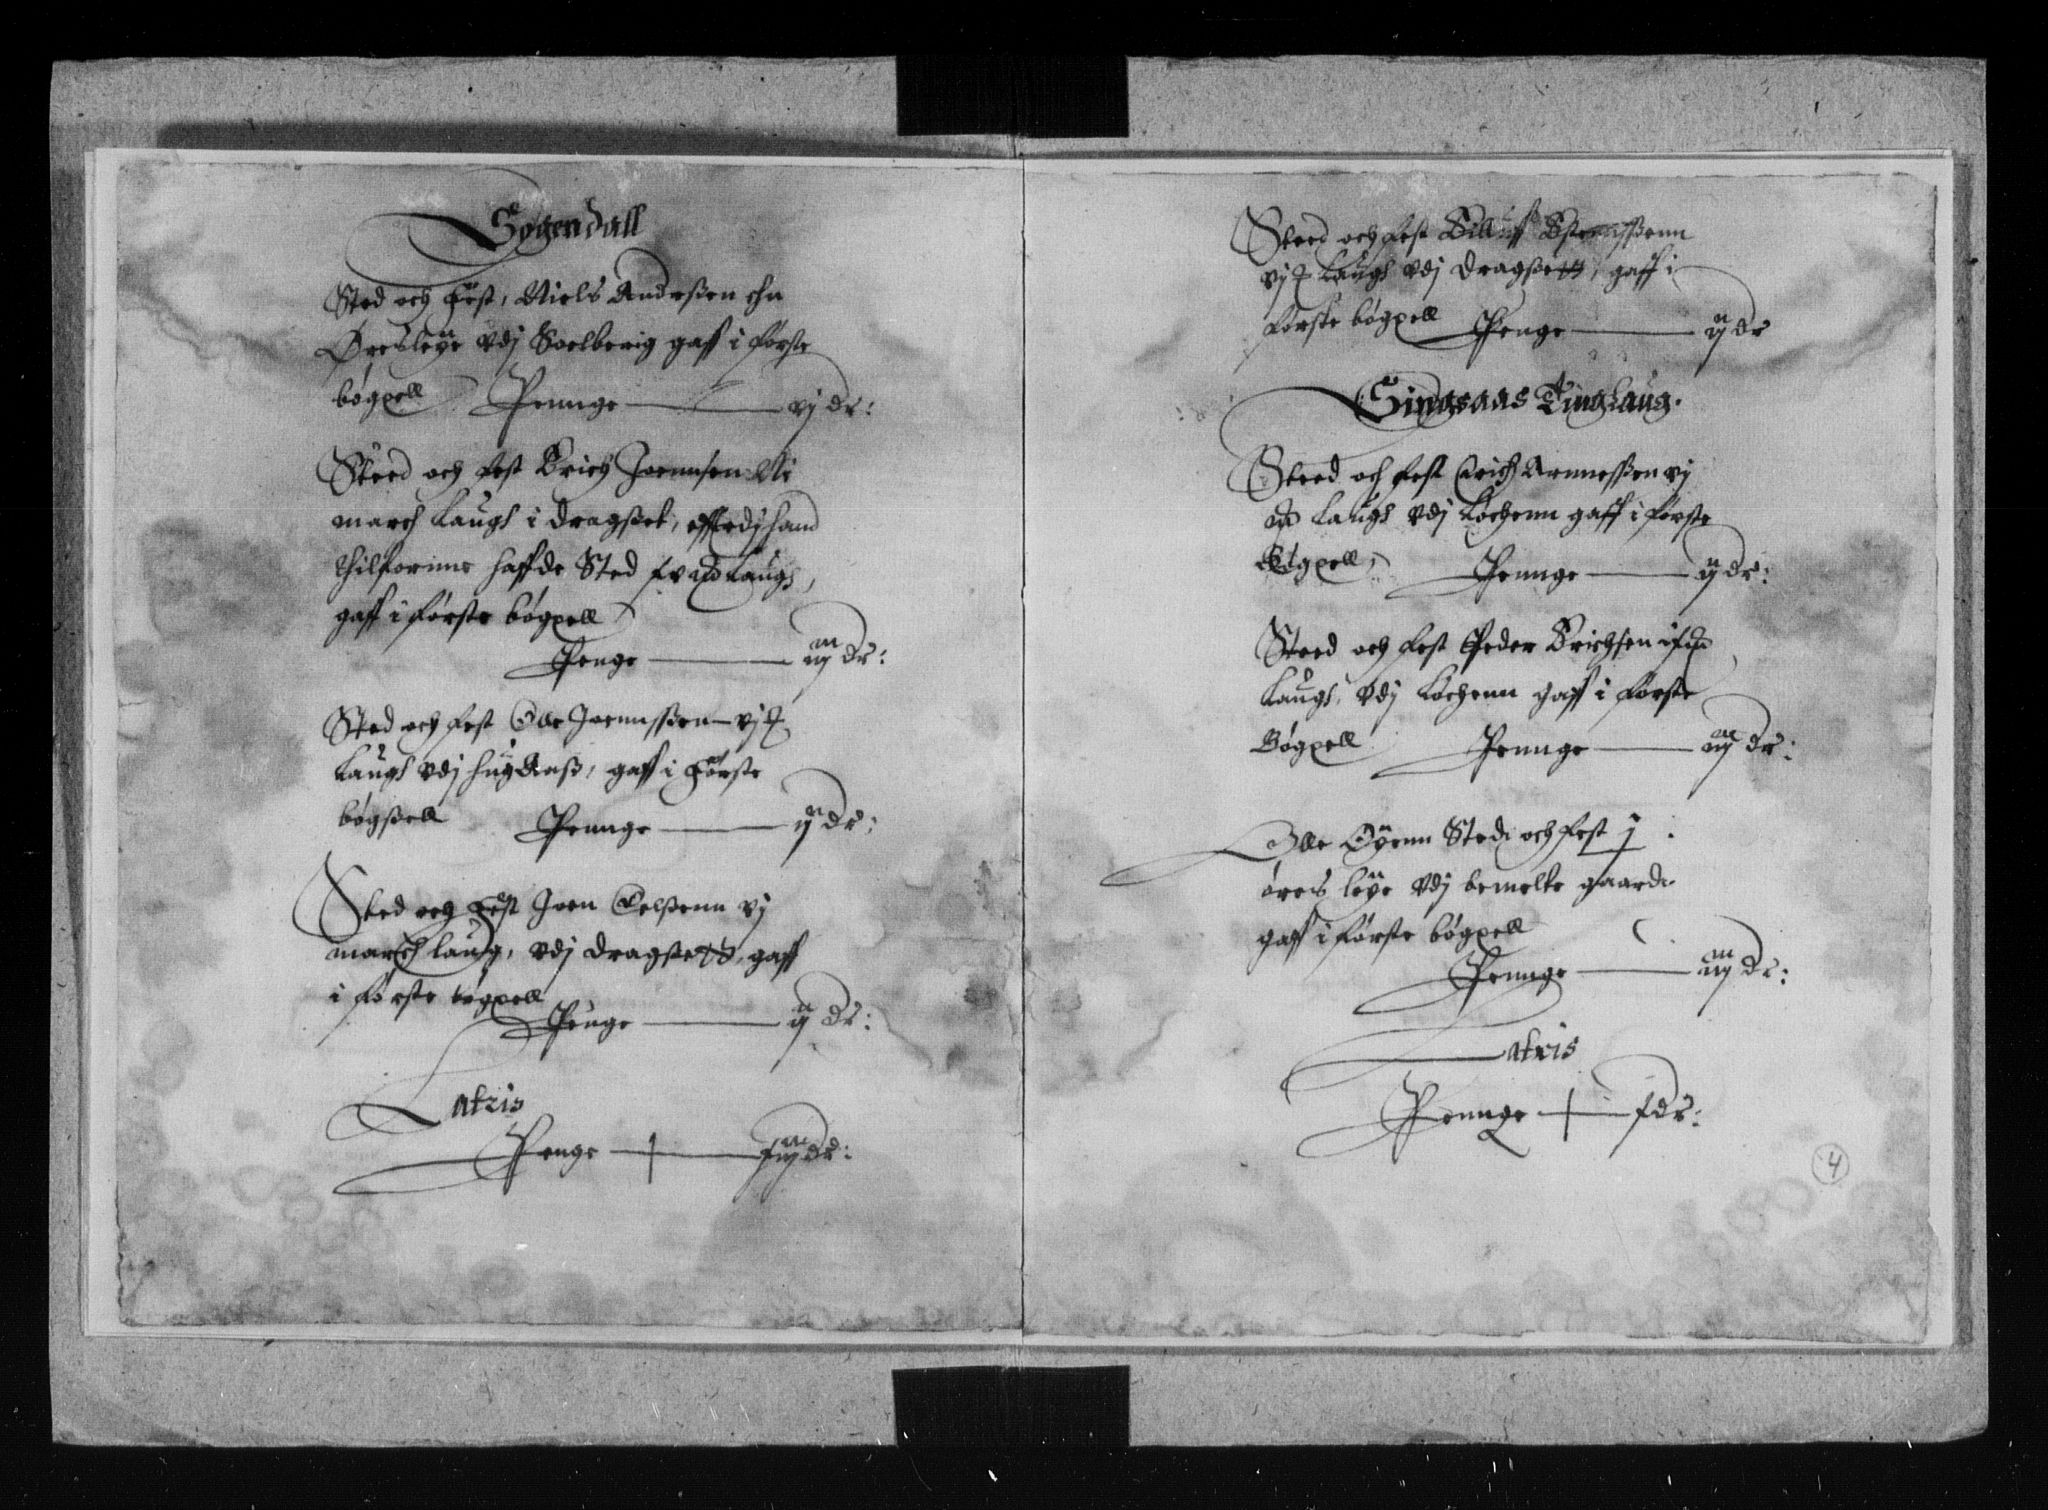 Sogendall
Sted och Fest, Niels Anderßen ehn
Øresleÿe vdj Soelberig gaff i første
bøgxell Pennge — vj dr:
Steed och fest Erich Joennsen Ni
march Laugs i dragßet, efftedj hand
thilforinne haffde Sted
gaff i første bøgxell
Penge — iiij dr:
Sted och fest Olle Joennssen vj
Laugs vdj gaff i Første
bøgßell Pennge — ij dr:
Sted och Fest Joen vj
march laug, vdj dragsett, gaff
i første bøgxell
Penge — ij dr:
Latris
Penge — dr:
Steed och fest
Laugs vdj dragßett, gaff i
første bøgxell Penge — ij dr
Singsaas Tinglaug.
Steed och fest Erich Arnneßen vj
Laugs vdj Kochenn gaff i første
Bøgxell, Pennge — ij dr:
Steed och fest Peder Erichsen
Laugs, vdj Kochenn gaff i første
Bøgxell Pennge — iiij dr:
Olle Øyenn Sted och fest 1
øreis leÿe vdj bemelte gaard
gaff i første bøgxell
Pennge — iiij dr:
Latris
Pennge — dr:
4